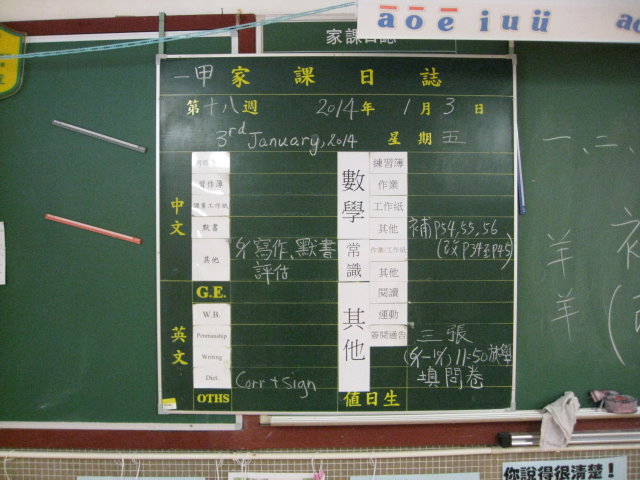 ā o ē i u ü
家課日誌
一甲 家課日誌
第十八週 2014年 1月3日
3rd January, 2014 星期五
中文
習作簿
課業工作紙
默書
其他
寫作、默書
評估
G.E.
英文
W.B.
Penmanship
Writing
Dict.
Corr + sign
OTHS
數學
練習簿
作業
工作紙
其他
補P54,55,56
常識
作業/工作紙
其他
其他
閱讀
運動
簽閱通告
三張
11:50放學
填問卷
值日生
一、二、
羊
羊
你說得很清楚!